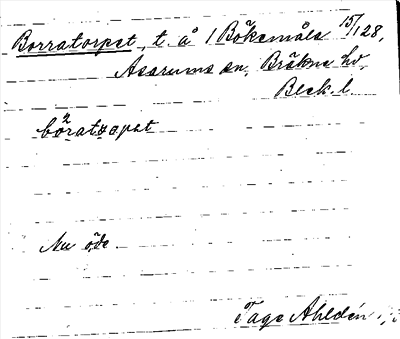 Borratorpet, t. å 1 Bökemåla 15/128,
Asarums sn, Bräkne hd,
Blek. l.
böratorpet
Nu öde
Tage Ahldén